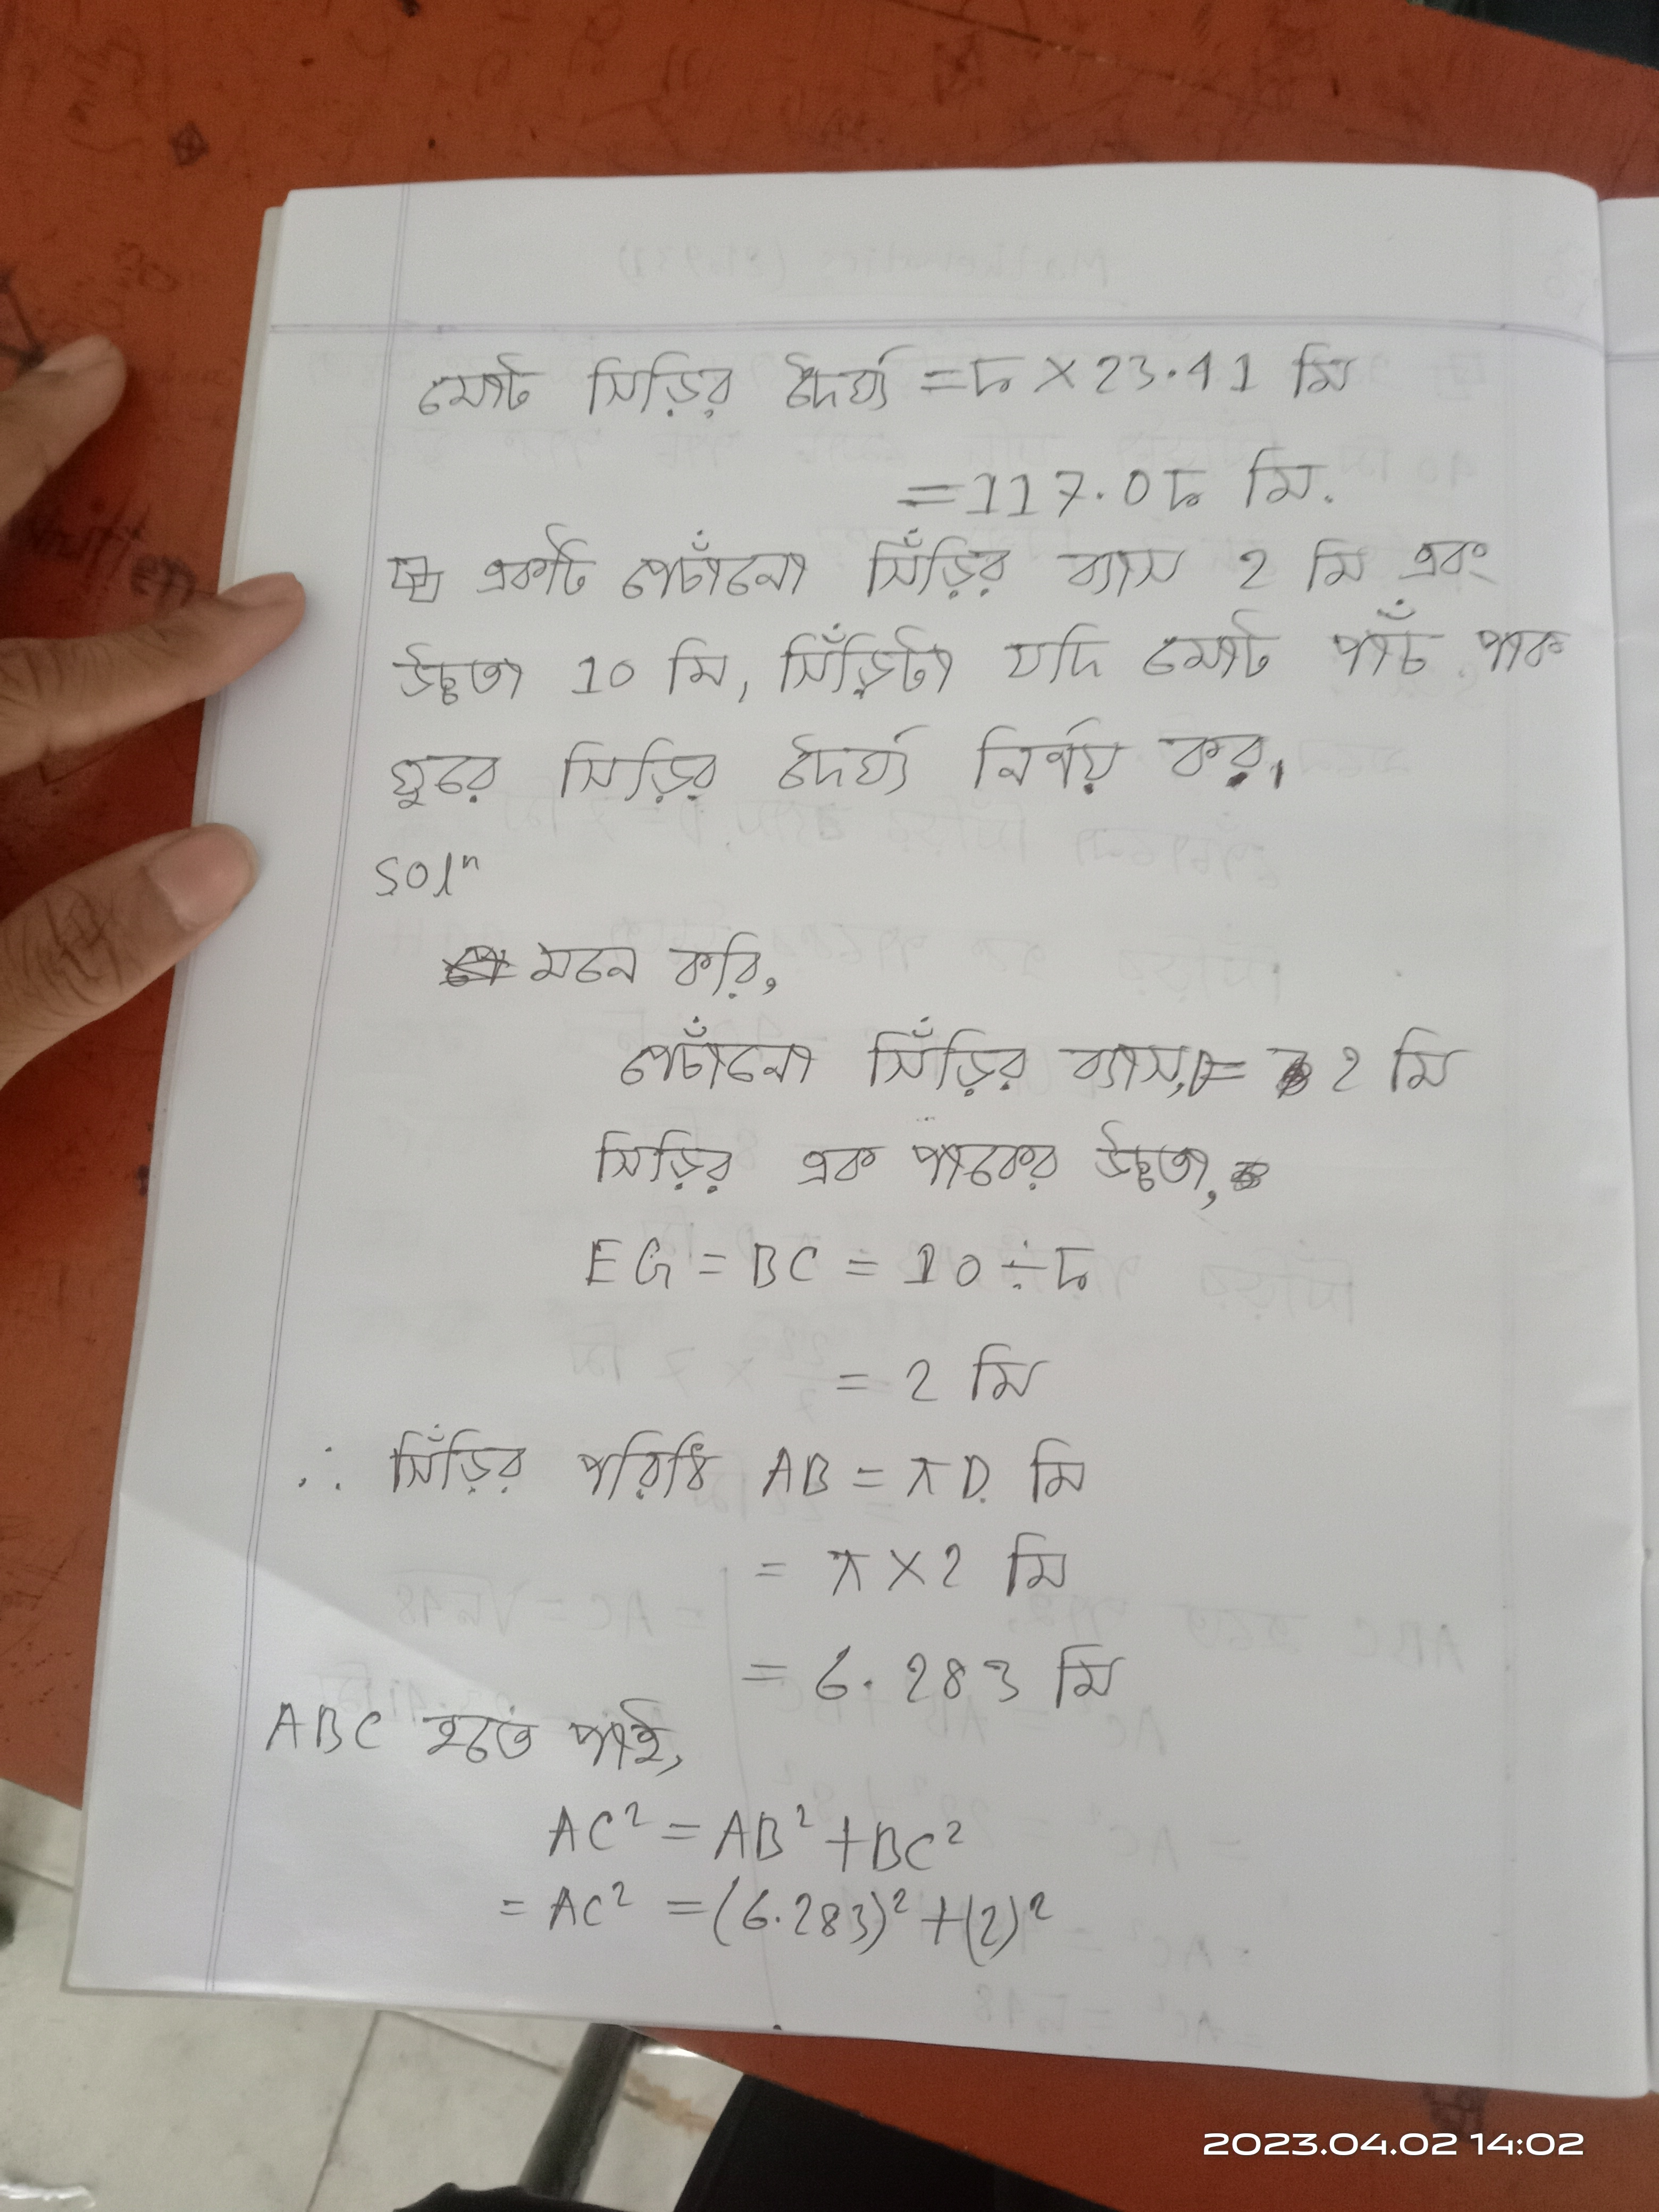 মোট সিড়ির দৈর্ঘ্য = 5 × 23.41 মি
= 117.05 মি.
একটি পেচাঁনো সিঁড়ির ব্যাস 2 মি এবং
উচ্চতা 10 মি, সিঁড়িটা যদি মোট পাঁচ পাক
ঘুরে সিড়ির দৈর্ঘ্য নির্ণয় কর।
Solⁿ
মনে করি,
পেচাঁনো সিঁড়ির ব্যাস, D = 2 মি
সিড়ির এক পাকের উচ্চতা,
EG = BC = 10 ÷ 5
= 2 মি
∴ সিঁড়ির পরিধি AB = πD. মি
= π × 2 মি
= 6.283 মি
ABC হতে পাই,
AC² = AB² + BC²
= AC² = (6.283)² + (2)²
2023.04.02 14:02